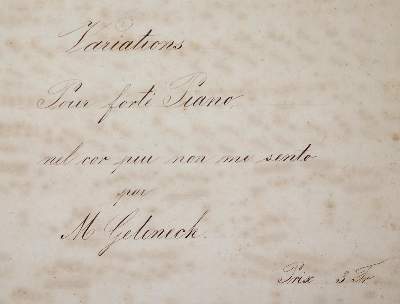 Variations
Pour forté Piano
nel cor piu non me sento
par
M Gelineck.
Prix 3 Fr